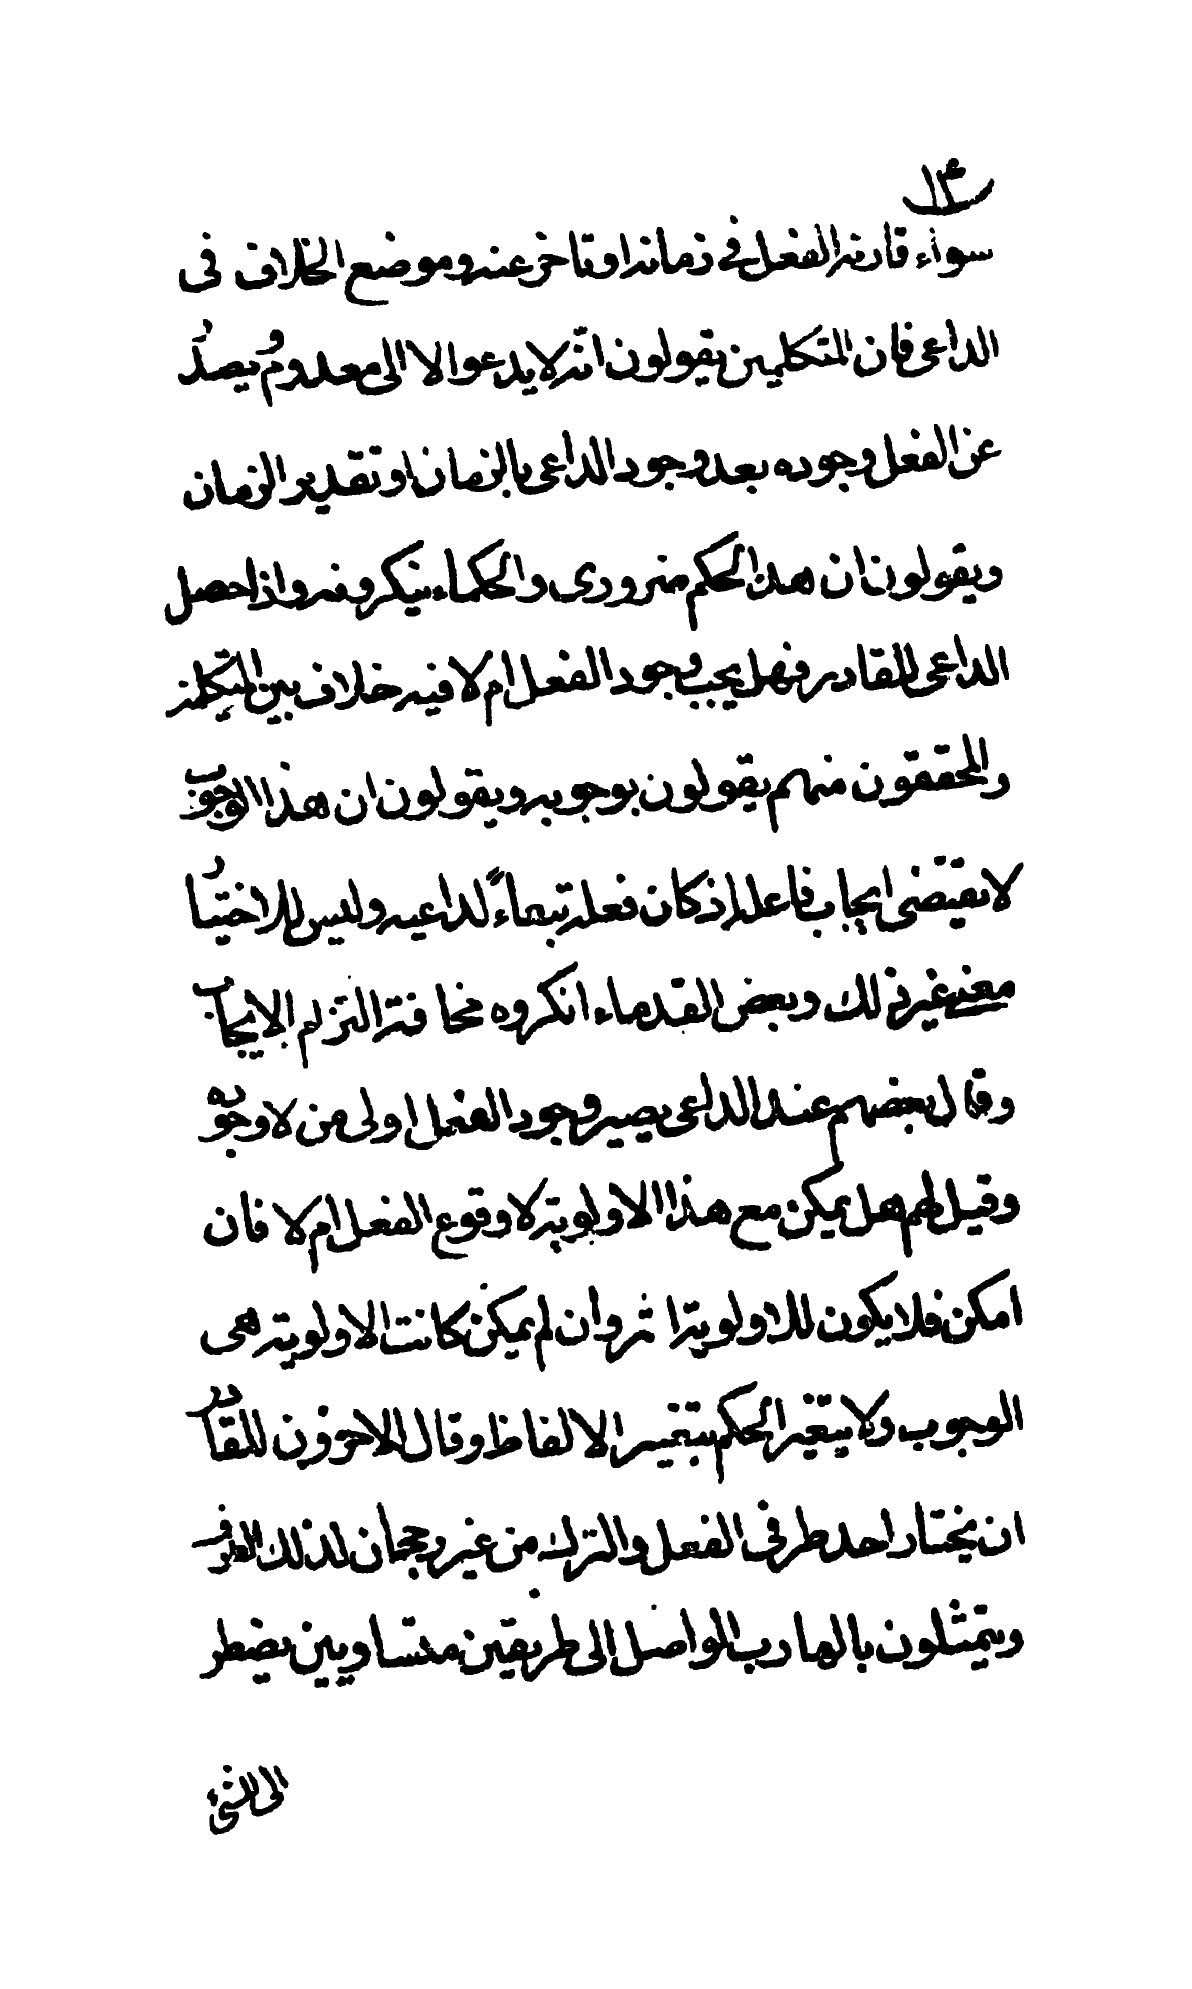 ١٤
سوآء قارنه الفعل في زمانه او تاخر عنه وموضع الخلاف فى
الداعى فان المتكلمين يقولون انّه لا يدعوا الا الى معدوم يصدُر
عن الفعل وجوده بعد وجود الداعى بالزمان او تقدير الزمان
ويقولون ان هذا الحكم ضرورى والحكماء ينكرونه واذا حصل
الداعى للقادر فهل يجب وجود الفعل ام لا فيه خلاف بين المتكلمين
والمحققون منهم يقولون بوجوبه ويقولون ان هذا الوجوب
لا يقتضى ايجاب فاعله اذ كان فعله تبعاً لداعيه وليس للاختيار
معنى غير ذلك وبعض القدماء انكروه مخافة التزام الايجاب
وقال بعضهم عند الداعى يصير وجود الفعل اولى من لا وجوده
وقيل لهم هل يمكن مع هذا الاولوية لا وقوع الفعل ام لا فان
امكن فلا يكون للاولوية اثر وان لم يمكن كانت الاولوية هى
الوجوب ولا يتغير الحكم بتغيير الالفاظ وقال الاخرون للقادر
ان يختار احد طرفى الفعل والترك من غير رجحان لذلك الطرف
ويتمثلون بالهارب الواصل الى طريقين متساويين يضطر
الى الشئ